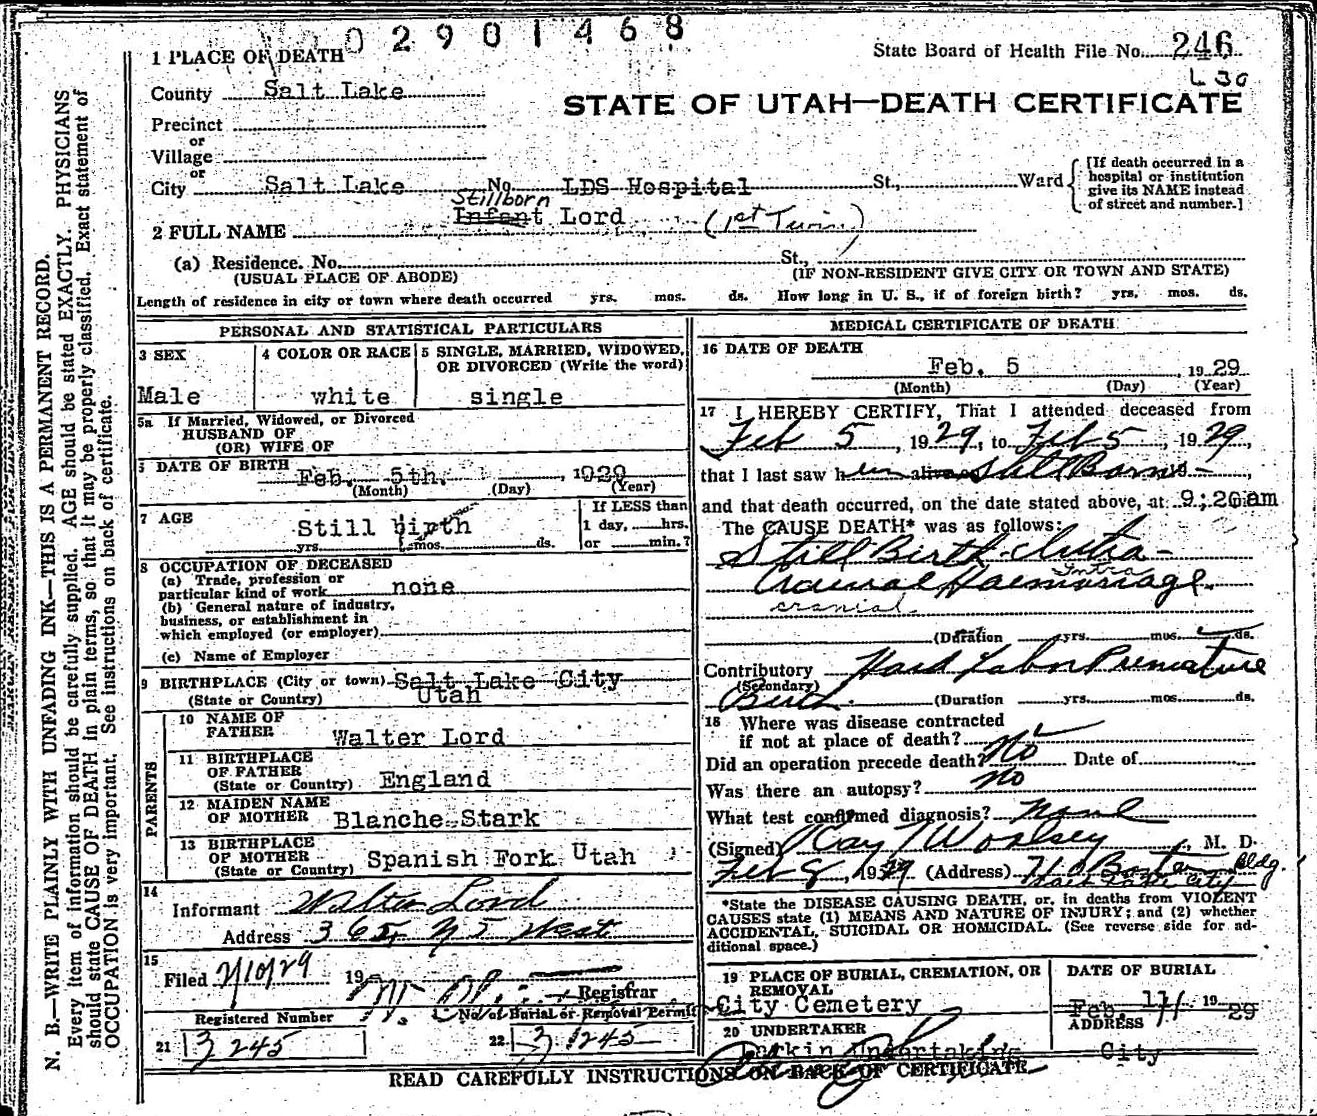 02901468
1 PLACE OF DEATH
State Board of Health File No. 246
L 30
County Salt Lake
STATE OF UTAH—DEATH CERTIFICATE
Precinct
or
Village
or
City Salt Lake No. LDS Hospital St., Ward
[If death occurred in a hospital or institution give its NAME instead of street and number.]
Stillborn
2 FULL NAME Infant Lord (1st Twin)
(a) Residence. No. St.,
(USUAL PLACE OF ABODE) (IF NON-RESIDENT GIVE CITY OR TOWN AND STATE)
Length of residence in city or town where death occurred yrs. mos. ds. How long in U. S., if of foreign birth? yrs. mos. ds.
PERSONAL AND STATISTICAL PARTICULARS
3 SEX 4 COLOR OR RACE 5 SINGLE, MARRIED, WIDOWED, OR DIVORCED (Write the word)
Male white single
5a If Married, Widowed, or Divorced
HUSBAND OF
(OR) WIFE OF
DATE OF BIRTH Feb. 5th. , 1929
(Month) (Day) (Year)
7 AGE Still birth
yrs. mos. ds.
If LESS than
1 day, hrs.
or min.?
8 OCCUPATION OF DECEASED
(a) Trade, profession or
particular kind of work none
(b) General nature of industry,
business, or establishment in
which employed (or employer)
(c) Name of Employer
9 BIRTHPLACE (City or town) Salt Lake City
(State or Country) Utah
PARENTS
10 NAME OF
FATHER Walter Lord
11 BIRTHPLACE
OF FATHER
(State or Country) England
12 MAIDEN NAME
OF MOTHER Blanche Stark
13 BIRTHPLACE
OF MOTHER
(State or Country) Spanish Fork Utah
14
Informant Walter Lord
Address N 5 West
15
Filed 2/10/29 19
Registrar
Registered Number No. of Burial or Removal Permit
21 3245 22 3245
MEDICAL CERTIFICATE OF DEATH
16 DATE OF DEATH
Feb. 5 , 1929
(Month) (Day) (Year)
17 I HEREBY CERTIFY, That I attended deceased from
Feb 5, 1929, to Feb 5, 1929,
that I last saw h alive Still Born
and that death occurred, on the date stated above, at 9:20 am
The CAUSE DEATH* was as follows:
Still Birth Intra-
Intra
Cranial Haemorrage
cranial
(Duration yrs. mos. ds.
Contributory Hard Labor Premature
(Secondary)
Birth. (Duration yrs. mos. ds.
18 Where was disease contracted
if not at place of death?
Did an operation precede death? No Date of
Was there an autopsy? no
What test confirmed diagnosis? None
(Signed) Woolsey, M. D.
Feb 8, 1929 (Address) Boston Bldg.
Salt Lake City
*State the DISEASE CAUSING DEATH, or, in deaths from VIOLENT
CAUSES state (1) MEANS AND NATURE OF INJURY; and (2) whether
ACCIDENTAL, SUICIDAL OR HOMICIDAL. (See reverse side for ad-
ditional space.)
19 PLACE OF BURIAL, CREMATION, OR
REMOVAL
City Cemetery
DATE OF BURIAL
Feb. 11 1929
20 UNDERTAKER
Larkin Undertaking
ADDRESS
City
READ CAREFULLY INSTRUCTIONS ON BACK OF CERTIFICATE
N. B.—WRITE PLAINLY WITH UNFADING INK—THIS IS A PERMANENT RECORD.
Every item of information should be carefully supplied. AGE should be stated EXACTLY. PHYSICIANS
should state CAUSE OF DEATH in plain terms, so that it may be properly classified. Exact statement of
OCCUPATION is very important. See instructions on back of certificate.